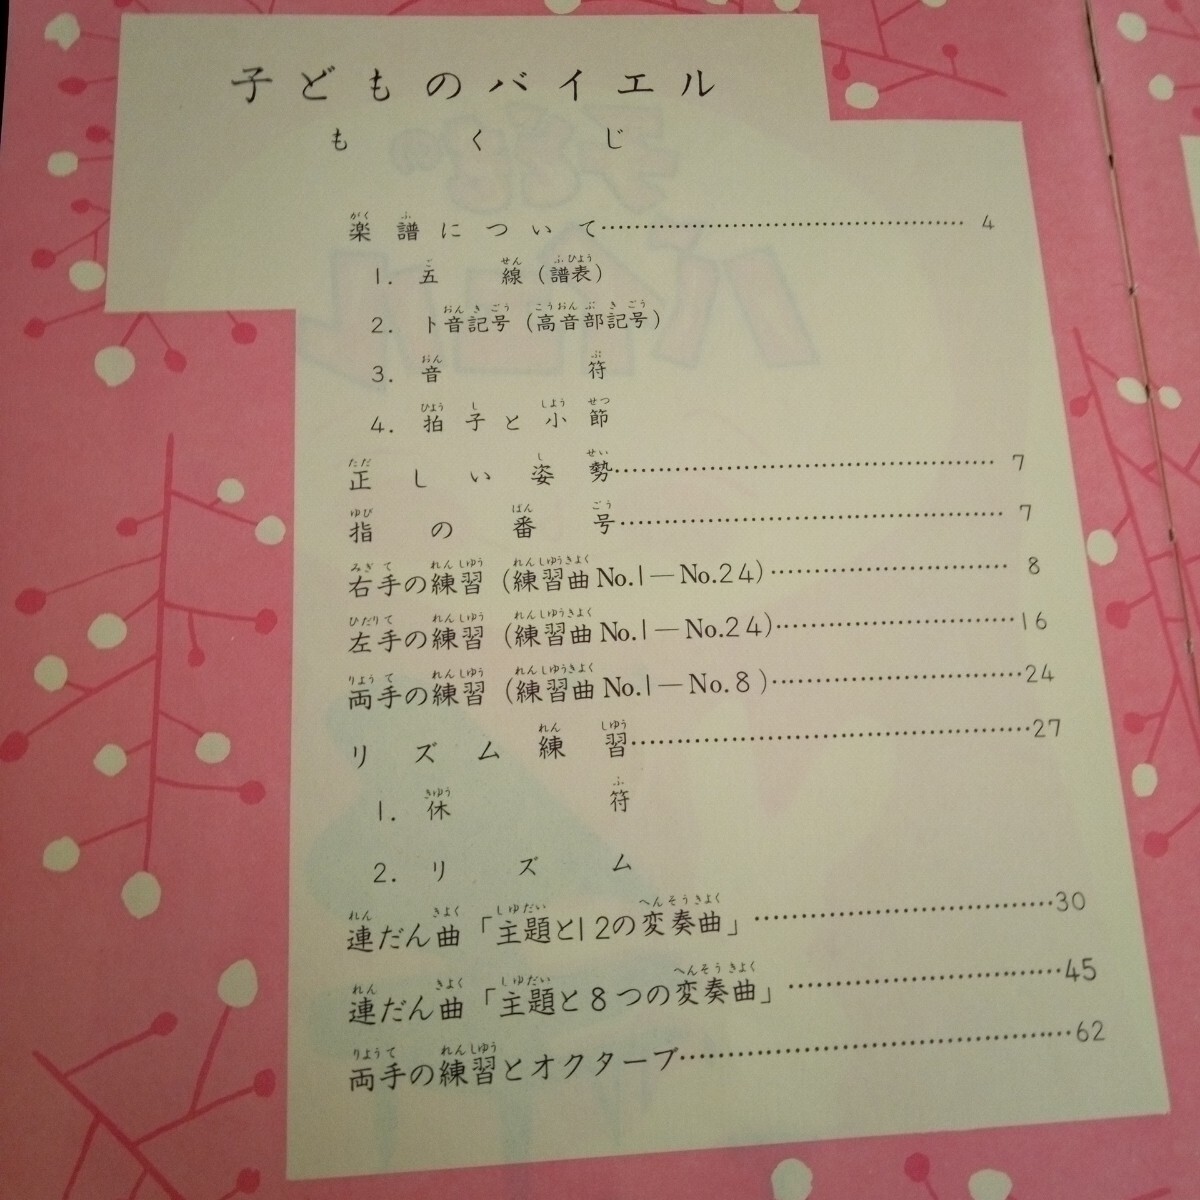 子どものバイエル
もくじ
楽譜について…………………………………… 4
1. 五線(譜表)
2. ト音記号(高音部記号)
3. 音符
4. 拍子と小節
正しい姿勢…………………………………… 7
指の番号…………………………………… 7
右手の練習(練習曲No.1―No.24)………………………… 8
左手の練習(練習曲No.1―No.24)………………………16
両手の練習(練習曲No.1―No.8)………………………24
リズム練習……………………………………27
1. 休符
2. リズム
連だん曲「主題と12の変奏曲」……………………………30
連だん曲「主題と8つの変奏曲」…………………………45
両手の練習とオクターブ……………………………………62